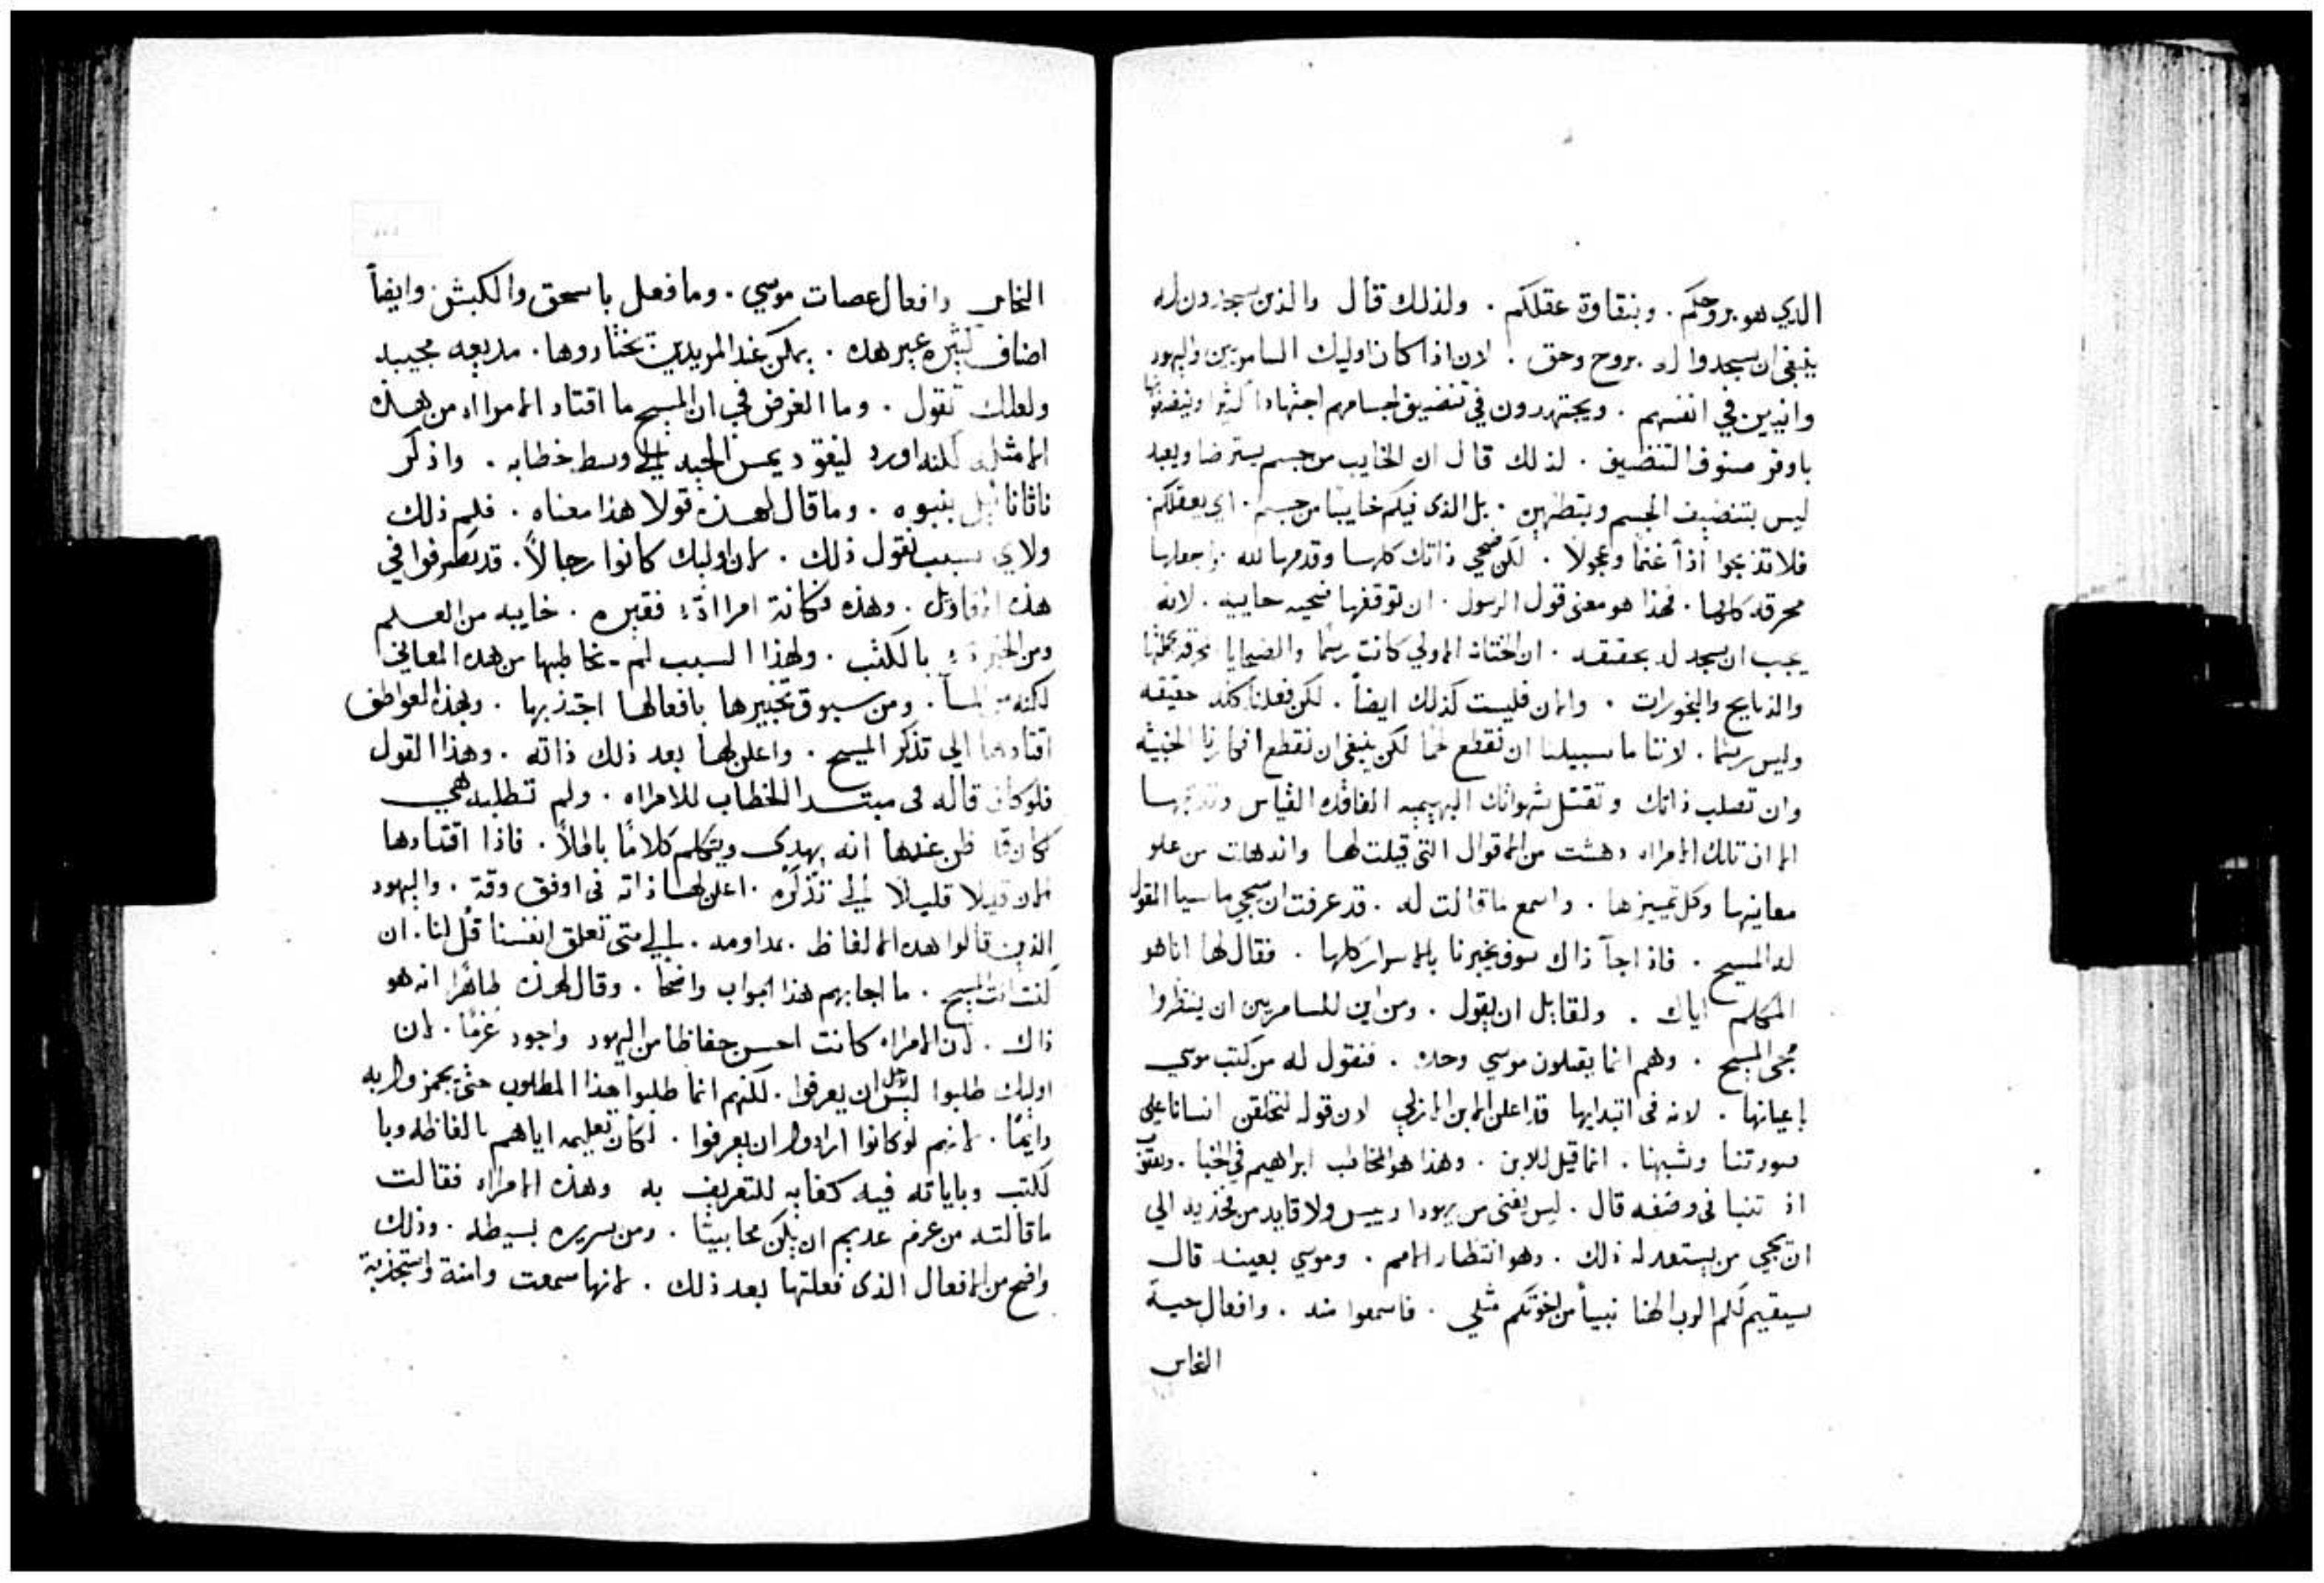 الذي هو بروحكم . وبنقاوة عقلكم . ولذلك قال والذين يسجدون له
ينبغي ان يسجدوا له بروح وحق . لان اذا كان اوليك السامريين واليهود
وانيين في انفسهم . ويجتهدون في تنضيف اجسامهم اجتهادا كثيرا
باوفر صنوف التنضيف . لذلك قال ان الخايب من جسم يسترضا ويعبد
ليس بتنضيف الجسم وبتطهيره . بل الذي فيكم خايبا من جسم . اي بعقلكم .
فلا تذبحوا اذا غنما وعجولا . لكن ضحي ذاتك كلها وقدمها لله واجعلها
محرقه كلها . فهذا هو معنى قول الرسول . ان توقفها ضحيه حاييه . لانه
يجب ان يسجد له بحقيقه . ان الختانه الاولي كانت رسما والضحايا
والذبايح والبخورات . والان فليست كذلك ايضاً . لكن فعلنا كله حقيقه
وليس رسما . لاننا ما سبيلنا ان نقطع لحما لكن ينبغي ان نقطع افكارنا الخبيثه
وان تصلب ذاتك وتقتل شهواتك البهيميه الفاقده القياس وتذبحها
الا ان تلك الامراه دهشت من الاقوال التي قيلت لها واندهلت من علو
معانيها وكل تمييزها . واسمع ما قالت له . قد عرفت ان سيجي ماسيا المقول
له المسيح . فاذا جآ ذاك سوف يخبرنا بالاسرار كلها . فقال لها انا هو
المكلم اياك . ولقايل ان يقول . ومن اين للسامريين ان ينتظروا
مجي المسيح . وهم انما يقبلون موسي وحده . فنقول له من كتب موسي
باعيانها . لانه في ابتدايها قد اعلن الابن الازلي لان قوله لنخلقن انسانا علي
صورتنا وشبهنا . انما قيل للابن . وهذا هو المخاطب ابراهيم في الخبا . ويعقوب
اذ تنبا في وصفه قال . ليس يفنى من يهودا رييس ولا قايد من فخذيه الي
ان يجي من يستعد له ذلك . وهو انتظار الامم . وموسي بعينه قال
سيقيم لكم الرب الهنا نبيأ من اخوتكم مثلي . فاسمعوا منه . وافعال حية
النحاس
النحاس وافعال عصات موسي . وما فعل باسحق والكبش وايضاً
اصناف كثيره غير هذه . يمكن عند المريدين يختاروها . مجييه
ولعلك تقول . وما الغرض في ان المسيح ما اقتاد الامراه من هذه
الامثله لكنه اورد ليقوديمس الحيه الي وسط خطابه . واذكر
ناثانا ييل بنبوه . وما قال لهذه قولا هذا معناه . فلم ذلك
ولاي سبب نقول ذلك . لان اوليك كانوا رجالاً . قد تصرفوا في
هذه الاقاويل . وهذه فكانة امراة فقيره . خاييه من العلم
ومن الخبرة بالكتب . ولهذا السبب لم يخاطبها من هذه المعاني
لكنه من المآ . ومن سبوق تخبيرها بافعالها اجتذبها . وبهذه العواطف
اقتادها الي تذكر المسيح . واعلن لها بعد ذلك ذاته . وهذا القول
فلو كان قاله في مبتدا الخطاب للامراه . ولم تطلبه هي
لكان قد ظن عندها انه يهدي ويتكلم كلامًا باطلاً . فاذا اقتادها
الان قليلا قليلا الي تذكره . اعلن لها ذاته في اوفق وقة . واليهود
الذين قالوا هذه الالفاظ بمداومه . الي متى تعلق انفسنا قل لنا . ان
كنت انت المسيح . ما اجابهم هذا الجواب واضحا . وقال لهذه ظاهرا انه هو
ذاك . لان الامراه كانت احسن حفاظا من اليهود واجود عزمًا . لان
اوليك طلبوا ليس لاجل ان يعرفوا . لكنهم انما طلبوا هذا المطلوب حتى به
دايمًا . لانهم لو كانوا ارادوا ان يعرفوا . لكان تعليمه اياهم بالفاظه وبا
لكتب وباياته فيه كفايه للتعريف به وهذه الامراه فقالت
ما قالته من عزم عديم ان يكن محابيثا . ومن سريره بسيطه . وذلك
واضح من الافعال الذي فعلتها بعد ذلك . لانها سمعت وامنة